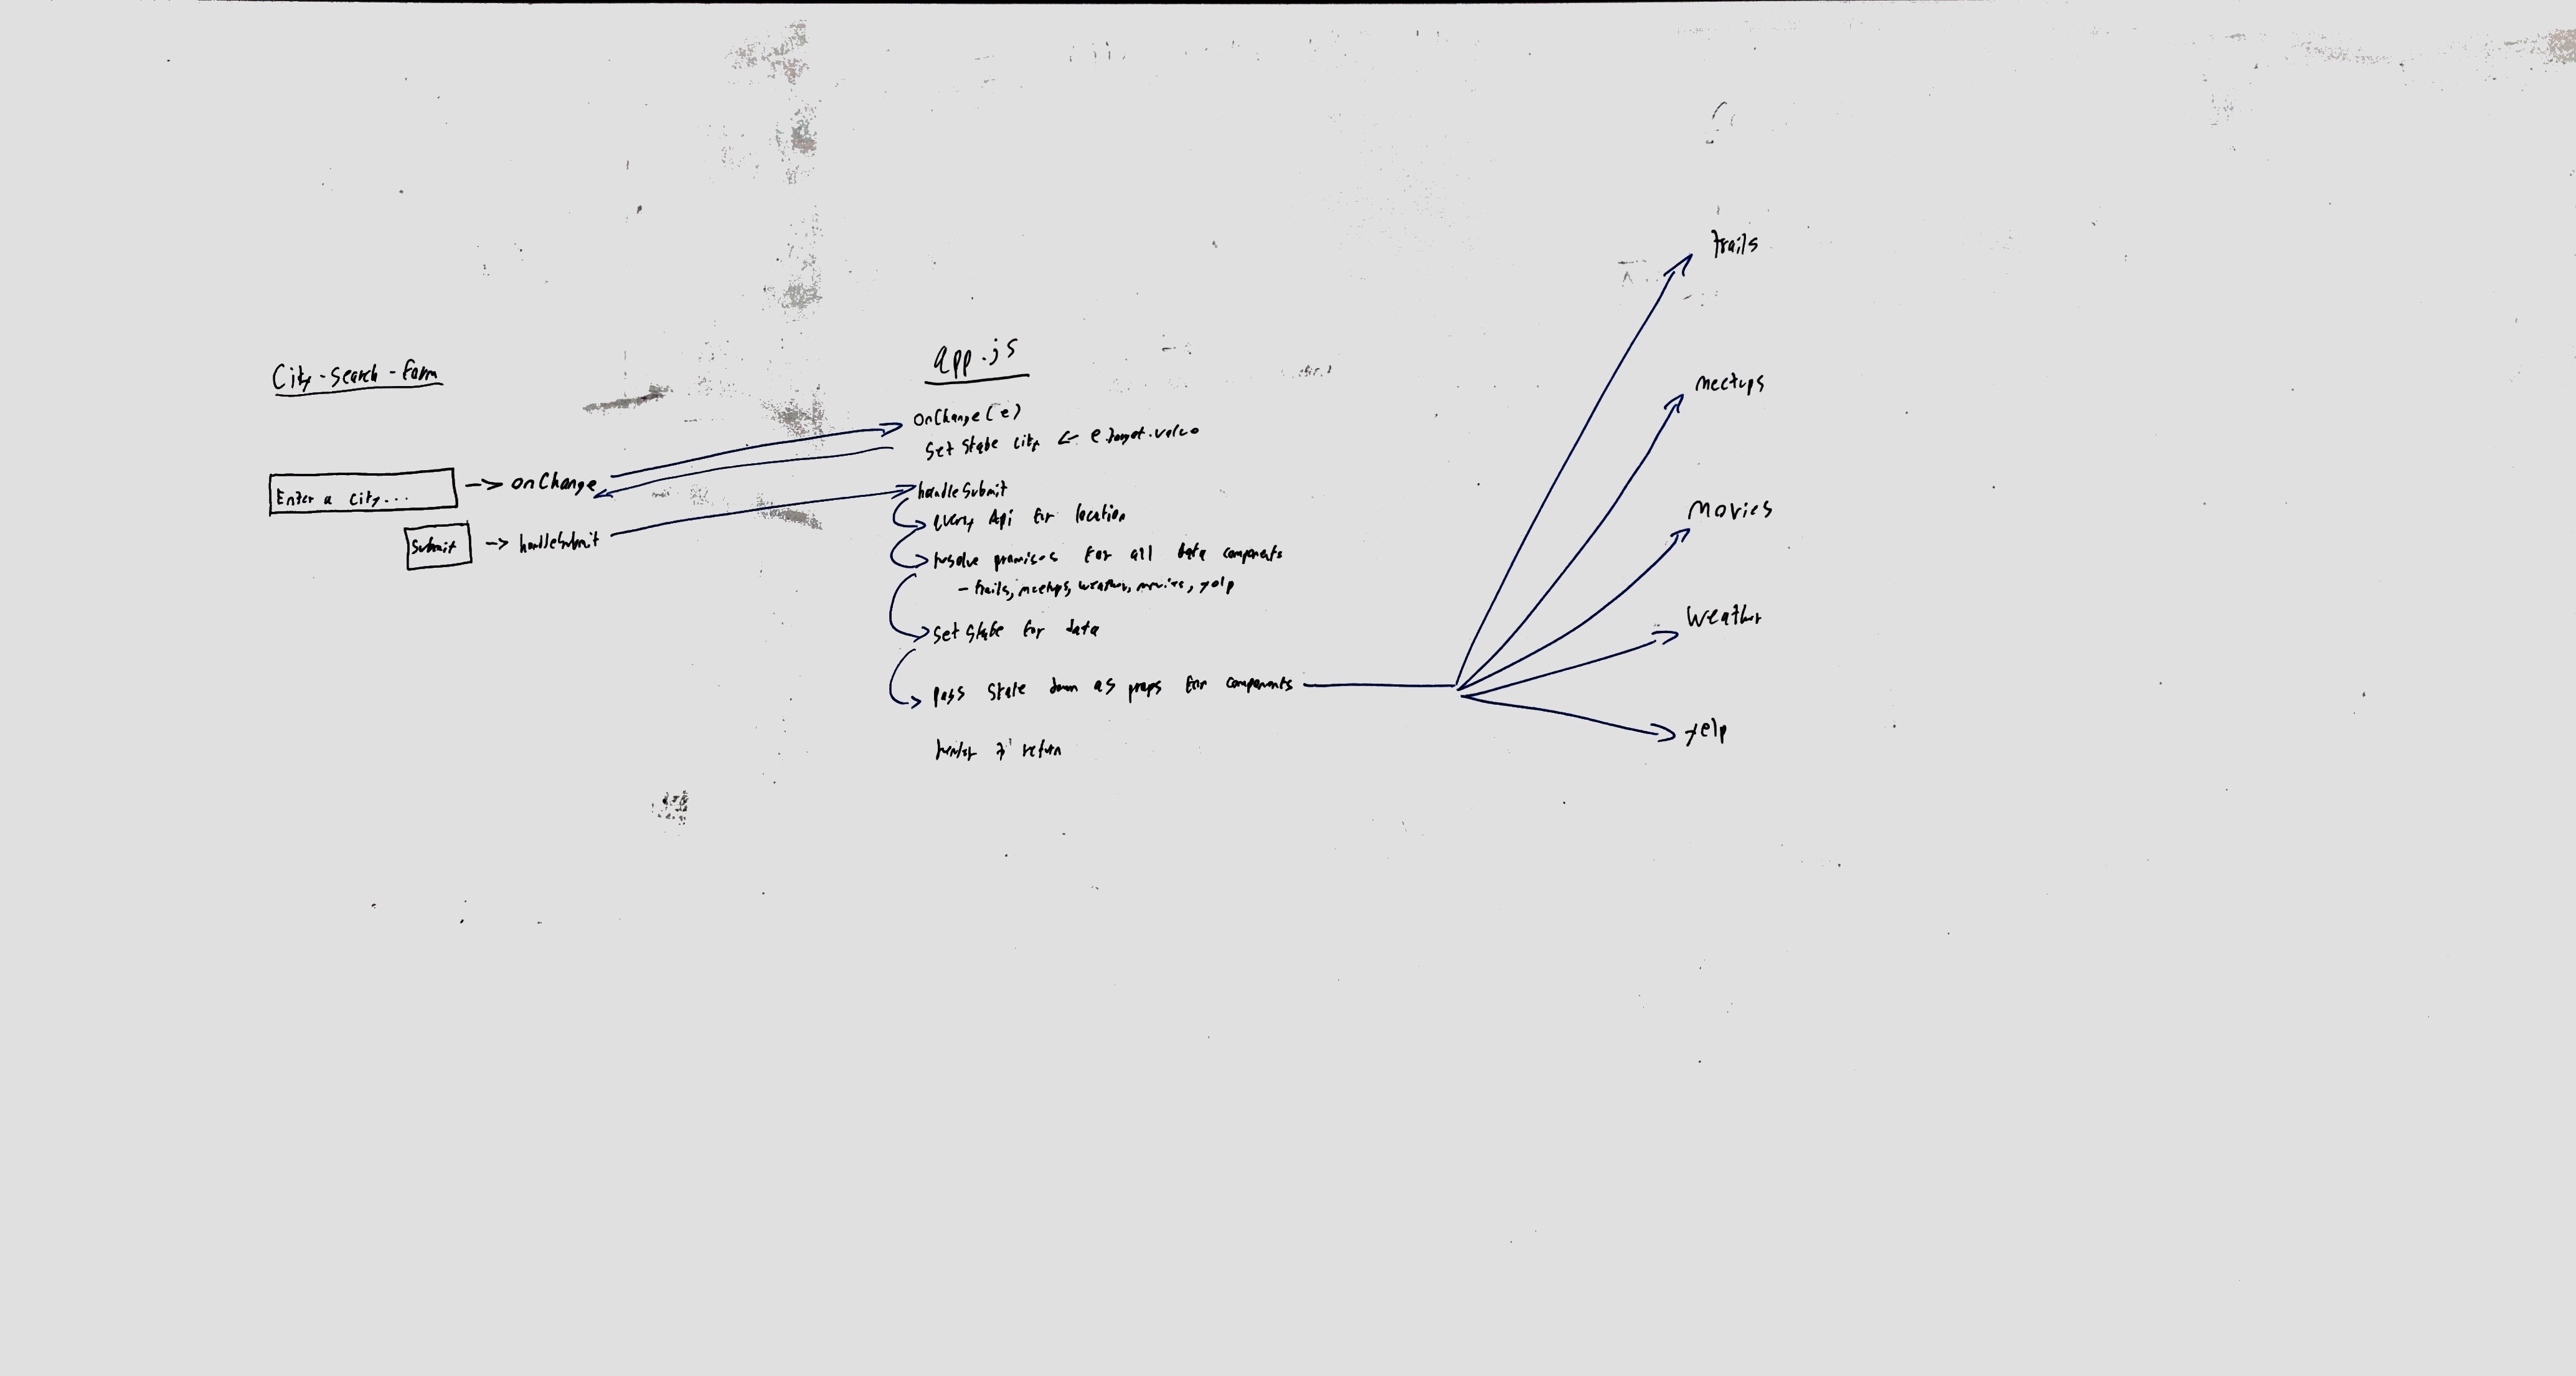 City-Search-Form
Enter a city...
-> onChange
Submit
-> handleSubmit
app.js
onChange(e)
Set State city <- e.target.value
handleSubmit
query Api for location
resolve promises for all data components
- trails, meetups, weather, movies, yelp
Set State for data
pass State down as props for components
return
trails
meetups
Movies
Weather
yelp